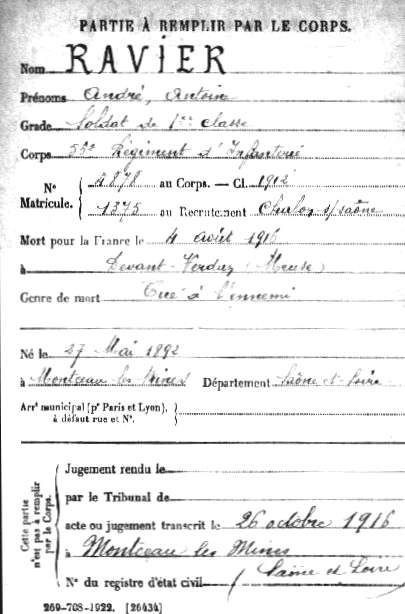 PARTIE À REMPLIR PAR LE CORPS.
Nom RAVIER
Prénoms André, Antoine
Grade Soldat de 1re classe
Corps Régiment d'Infanterie
N° Matricule. { 4878 au Corps. — Cl. 1912
1375 au Recrutement Chalon s/saône
Mort pour la France le 4 août 1916
à Devant-Verdun (Meuse)
Genre de mort Tué à l'ennemi
Né le 27 Mai 1892
à Montceau les Mines Département Saône-et-Loire
Arrt municipal (pr Paris et Lyon), }
à défaut rue et N°.
Cette partie n'est pas à remplir par le Corps.
Jugement rendu le
par le Tribunal de
acte ou jugement transcrit le 26 octobre 1916
à Montceau les Mines
N° du registre d'état civil (Saône et Loire
269-708-1922. [26434]